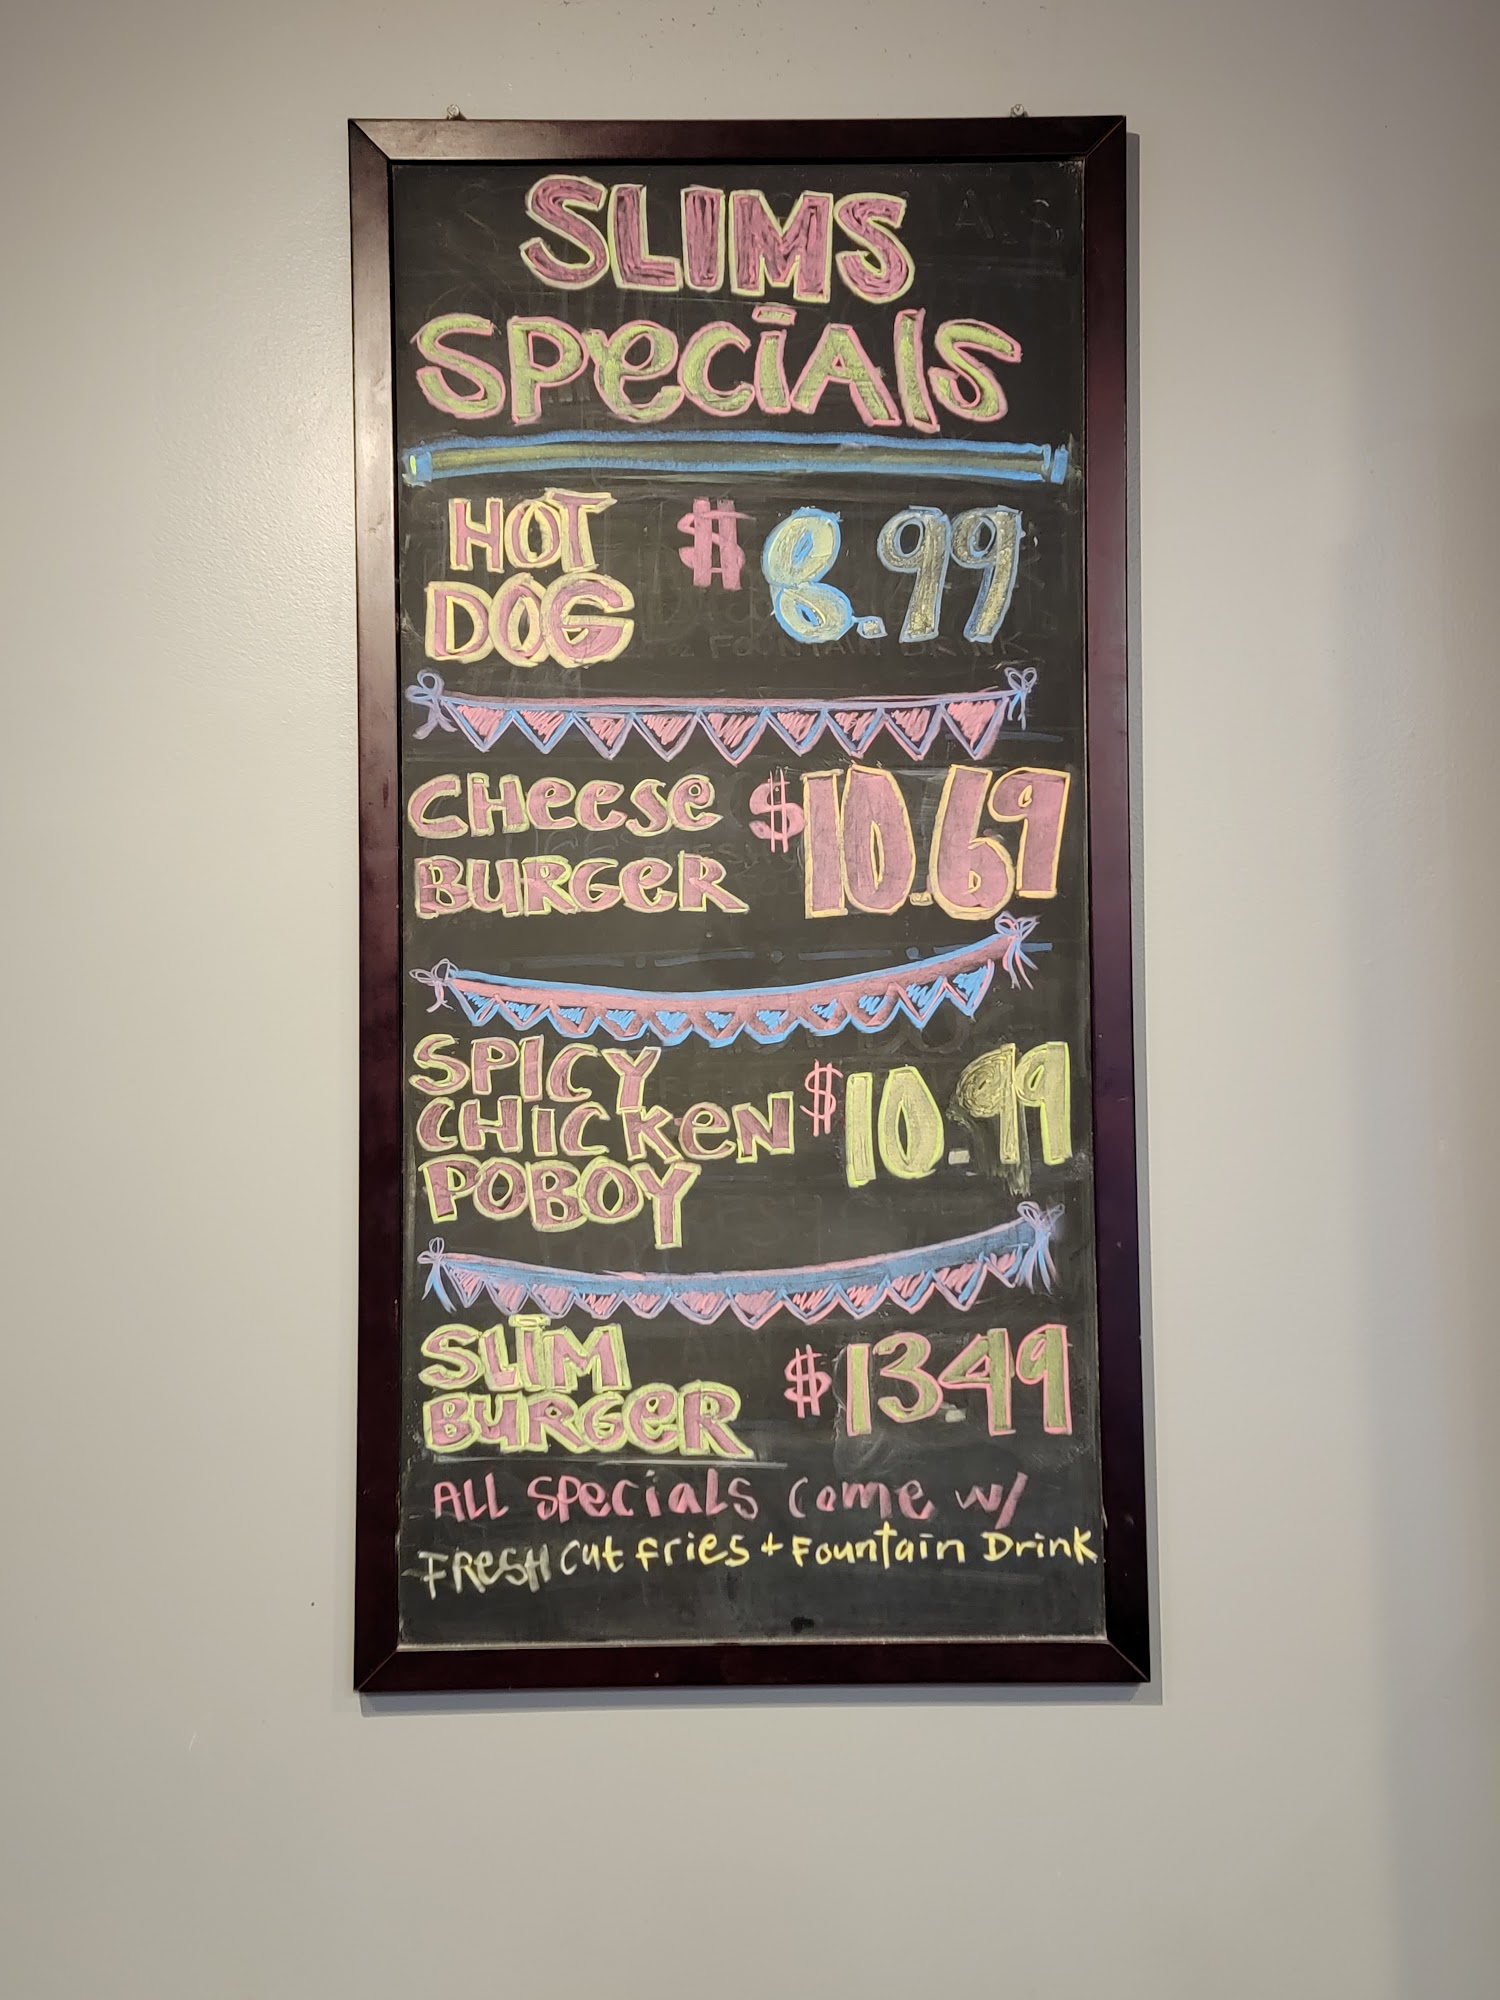 SLIMS
SPeCIAlS
HOT $ 8.99
DOG
CHeese $10.69
BURGeR
SPICY
CHICKeN $10.99
POBOY
SLIM $13.49
BURGeR
ALL SPecials Come w/
FResH Cut fries + Fountain Drink